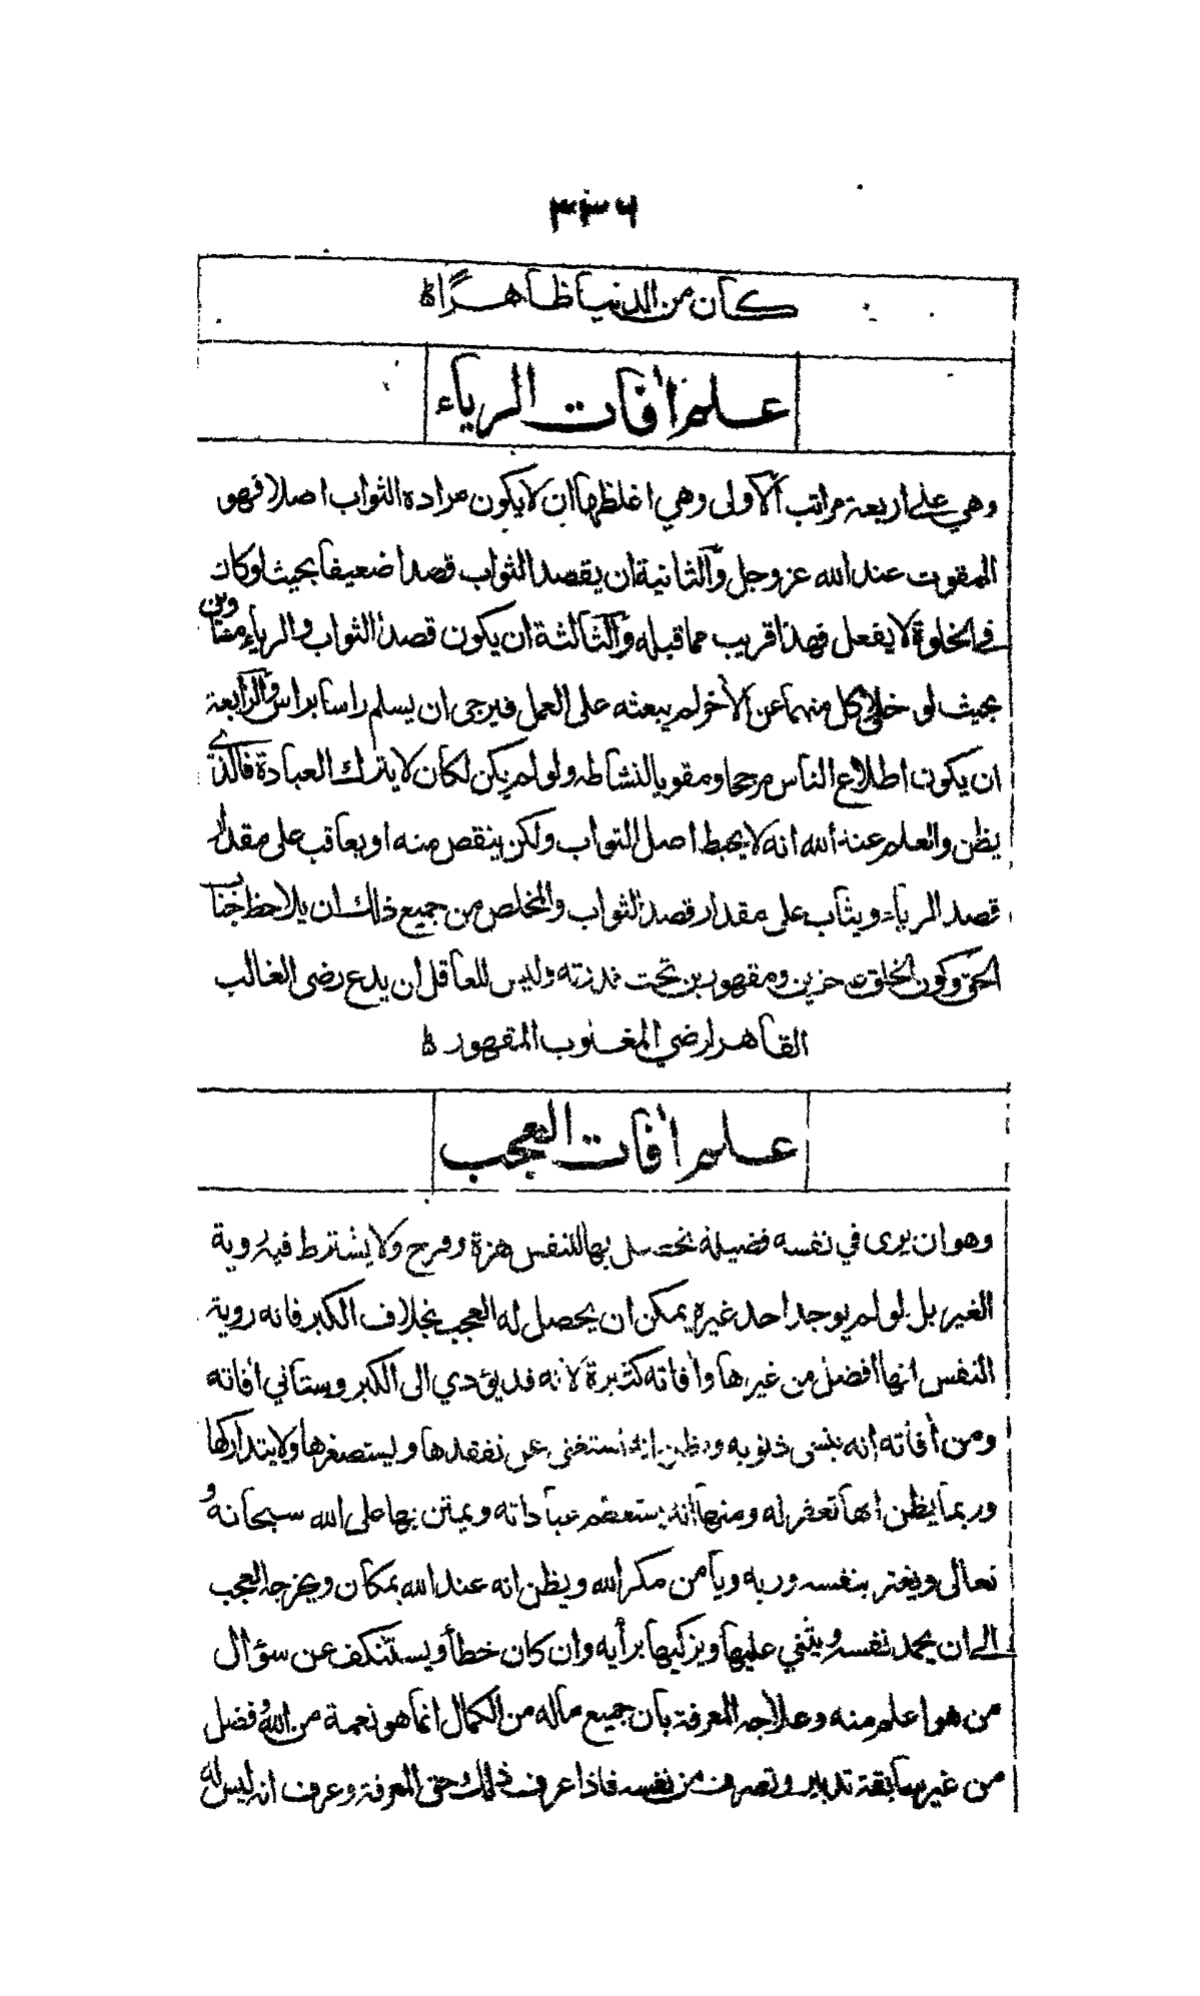 ٣٣٦
كان من الدنيا ظاهرًا ه
علم آفات الرياء
وهي على اربعة مراتب الأولى وهي اغلظها ان لا يكون مراده الثواب اصلا فهو
الممقوت عند الله عز وجل والثانية ان يقصد الثواب قصدا ضعيفا بحيث لو كان
في الخلوة لا يفعل فهذا قريب مما قبله والثالثة ان يكون قصد الثواب والرياء متساويين
بحيث لو خلى كل منهما عن الآخر لم يبعثه على العمل فيرجى ان يسلم راسا براس والرابعة
ان يكون اطلاع الناس مرجحا ومقويا لنشاطه ولو لم يكن لكان لا يترك العبادة فالذي
يظن والعلم عند الله انه لا يحبط اصل الثواب ولكن ينقص منه او يعاقب على مقدار
قصد الرياء ويثاب على مقدار قصد الثواب والمخلص من جميع ذلك ان يلاحظ جناب
الحق وكون الخلق عاجزين ومقهورين تحت قدرته وليس للعاقل ان يدع رضى الغالب
القاهر لرضي المغلوب المقهور ه
علم آفات العجب
وهو ان يرى في نفسه فضيلة تحصل بها للنفس هزة وفرح ولا يشترط فيه روية
الغير بل لو لم يوجد احد غيره يمكن ان يحصل له العجب بخلاف الكبر فانه روية
النفس انها افضل من غيرها وآفاته كثيرة لانه قد يؤدي الى الكبر وستاتي آفاته
ومن آفاته انه ينسى ذنوبه ويظن انه استغنى عن تفقدها ويستصغرها ولا يتداركها
وربما يظن انها تغفر له ومنها انه يستعظم عباداته ويمتن بها على الله سبحانه و
تعالى ويغتر بنفسه وربه ويأمن مكر الله ويظن انه عند الله بمكان ويخرجه العجب
الى ان يحمد نفسه ويثني عليها ويزكيها برأيه وان كان خطأ ويستنكف عن سؤال
من هو اعلم منه وعلاجه المعرفة بان جميع ماله من الكمال انما هو نعمة من الله وفضل
من غير سابقة تدبير وتصرف من نفسه فاذا عرف ذلك حق المعرفة وعرف انه ليس له